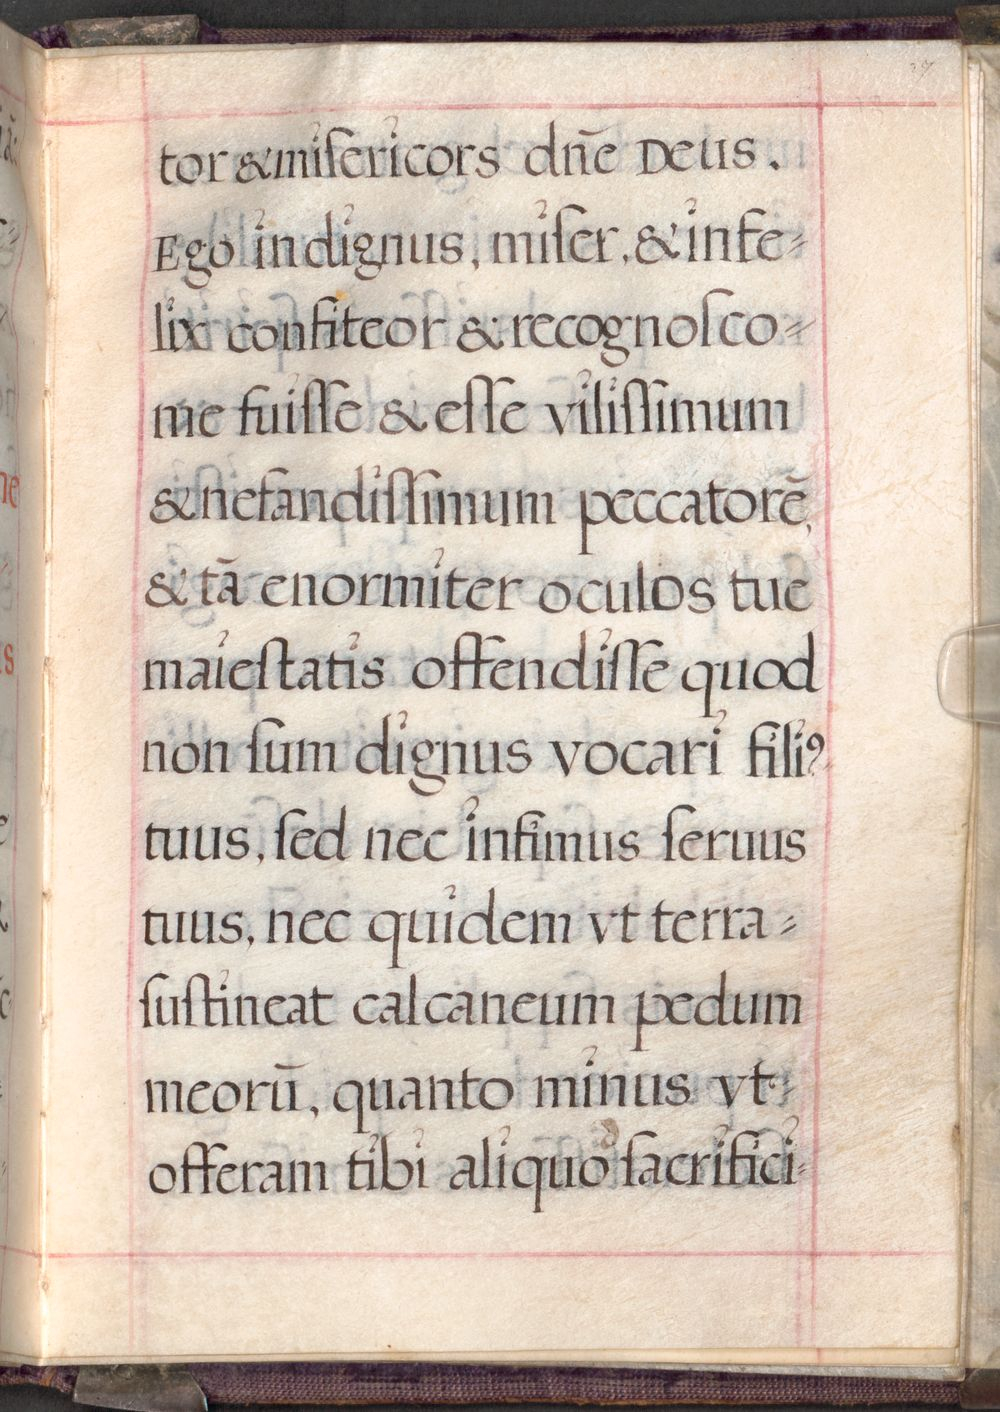 39
tor & miſericors dn̄e Deus.
Ego indignus, miſer, & infe=
lix confiteor & recognoſco=
me fuiſſe & eſſe viliſſimum
& nefandiſſimum peccatorē,
& tā enormiter oculos tue
maieſtatis offendiſſe quod
non ſum dignus vocari filiꝰ
tuus, ſed nec infimus ſeruus
tuus, nec quidem vt terra =
ſuſtineat calcaneum pedum
meorū, quanto minus vt=
offeram tibi aliquo ſacrifici=